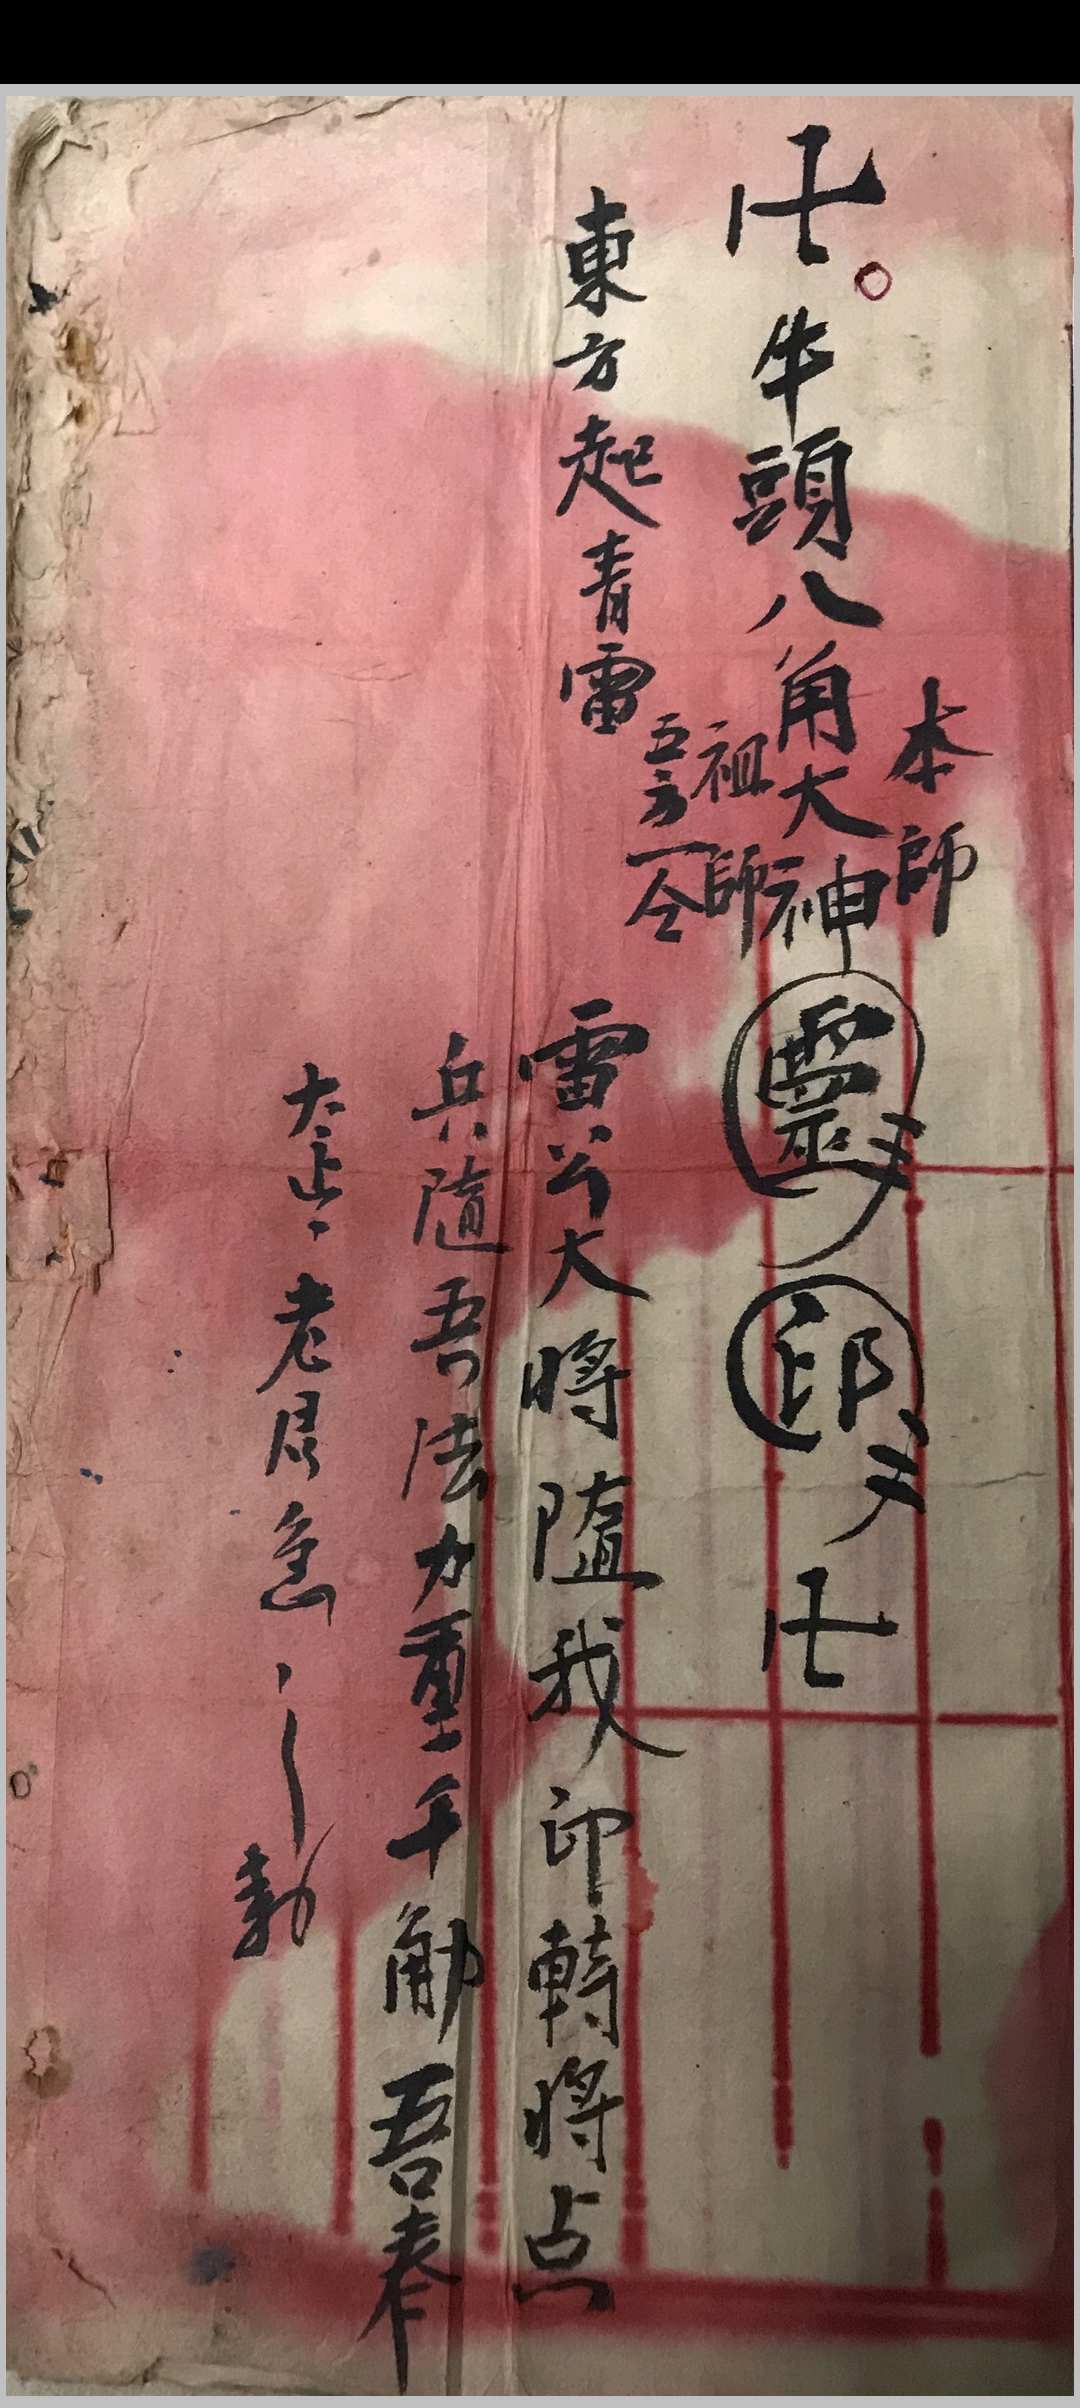 卍牛頭八角大神靈印卍
本師
祖師
五方一仝
東方起青雷
雷公大將隨我印轉將点
兵隨吾法力重千觔吾奉
太上老君急 勅